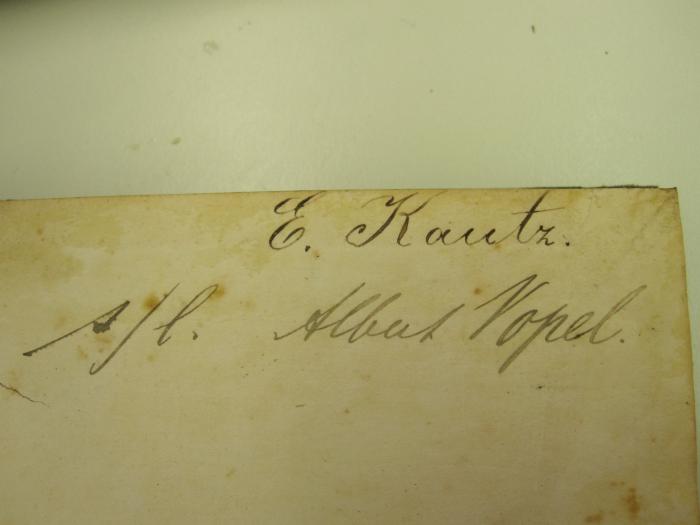 E. Kautz.
s/l. Albert Vopel.